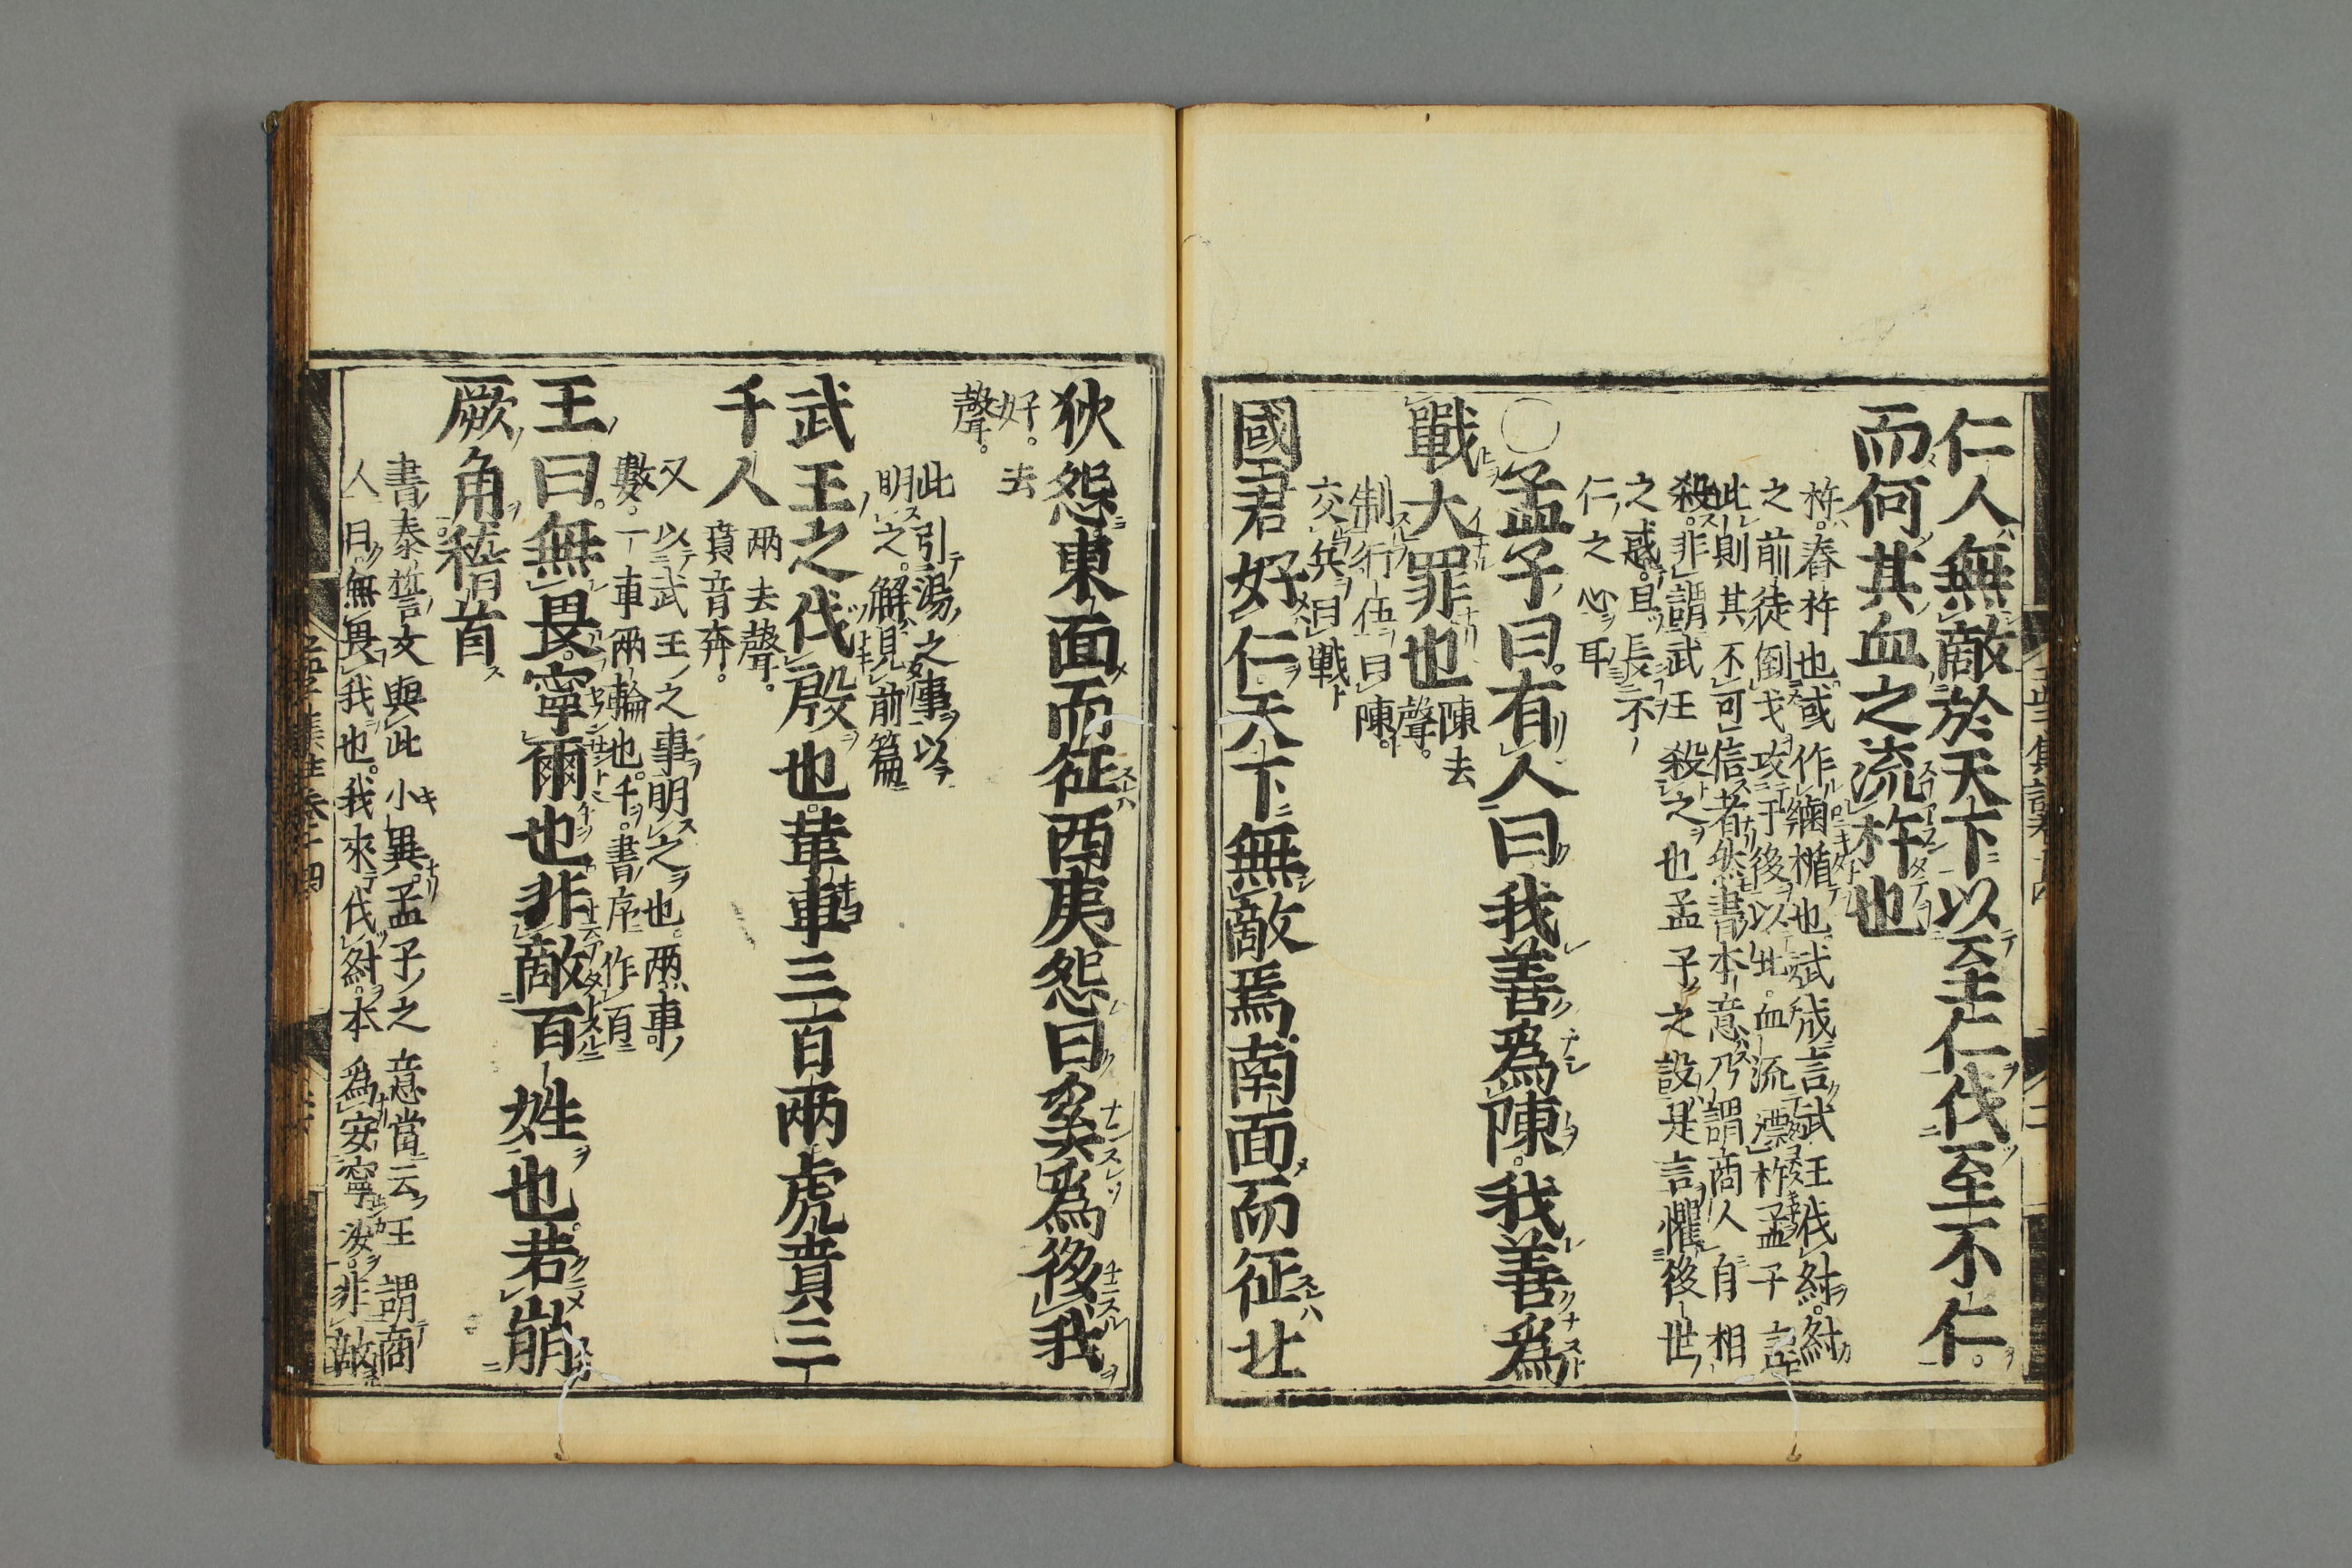 仁人無敵於天下以至仁伐至不仁
而何其血之流杵也
杵春杵也或作鹵楯也武成言武王伐紂紂
之前徒倒戈攻于後以北血流漂杵孟子言
此則其不可信者然書本意乃謂商人自相
殺非謂武王殺之也孟子之設是言懼後世
之惑且長不
仁之心耳
○孟子曰有人曰我善爲陳我善爲
戰大罪也
陳去
聲
制行伍曰陳
交兵曰戰
國君好仁天下無敵焉南面而征北
狄怨東面而征西夷怨曰奚爲後我
好去
聲
此引湯之事以
明之解見前篇
武王之伐殷也革車三百兩虎賁三
千人
兩去聲
賁音奔
又以武王之事明之也兩車
數一車兩輪也千書序作百
王曰無畏寧爾也非敵百姓也若崩
厥角稽首
書泰誓文與此小異孟子之意當云王謂商
人曰無畏我也我來伐紂本爲安寧汝非敵